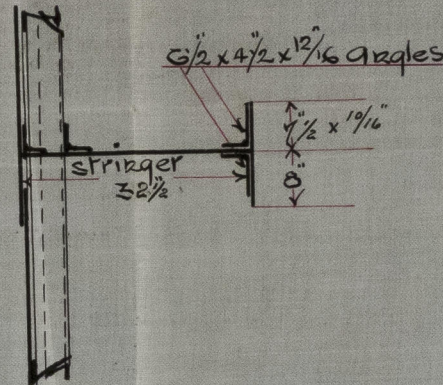 6½" x 4½" x 12/16 angles
7½" x 10/16"
stringer
32½"
8"